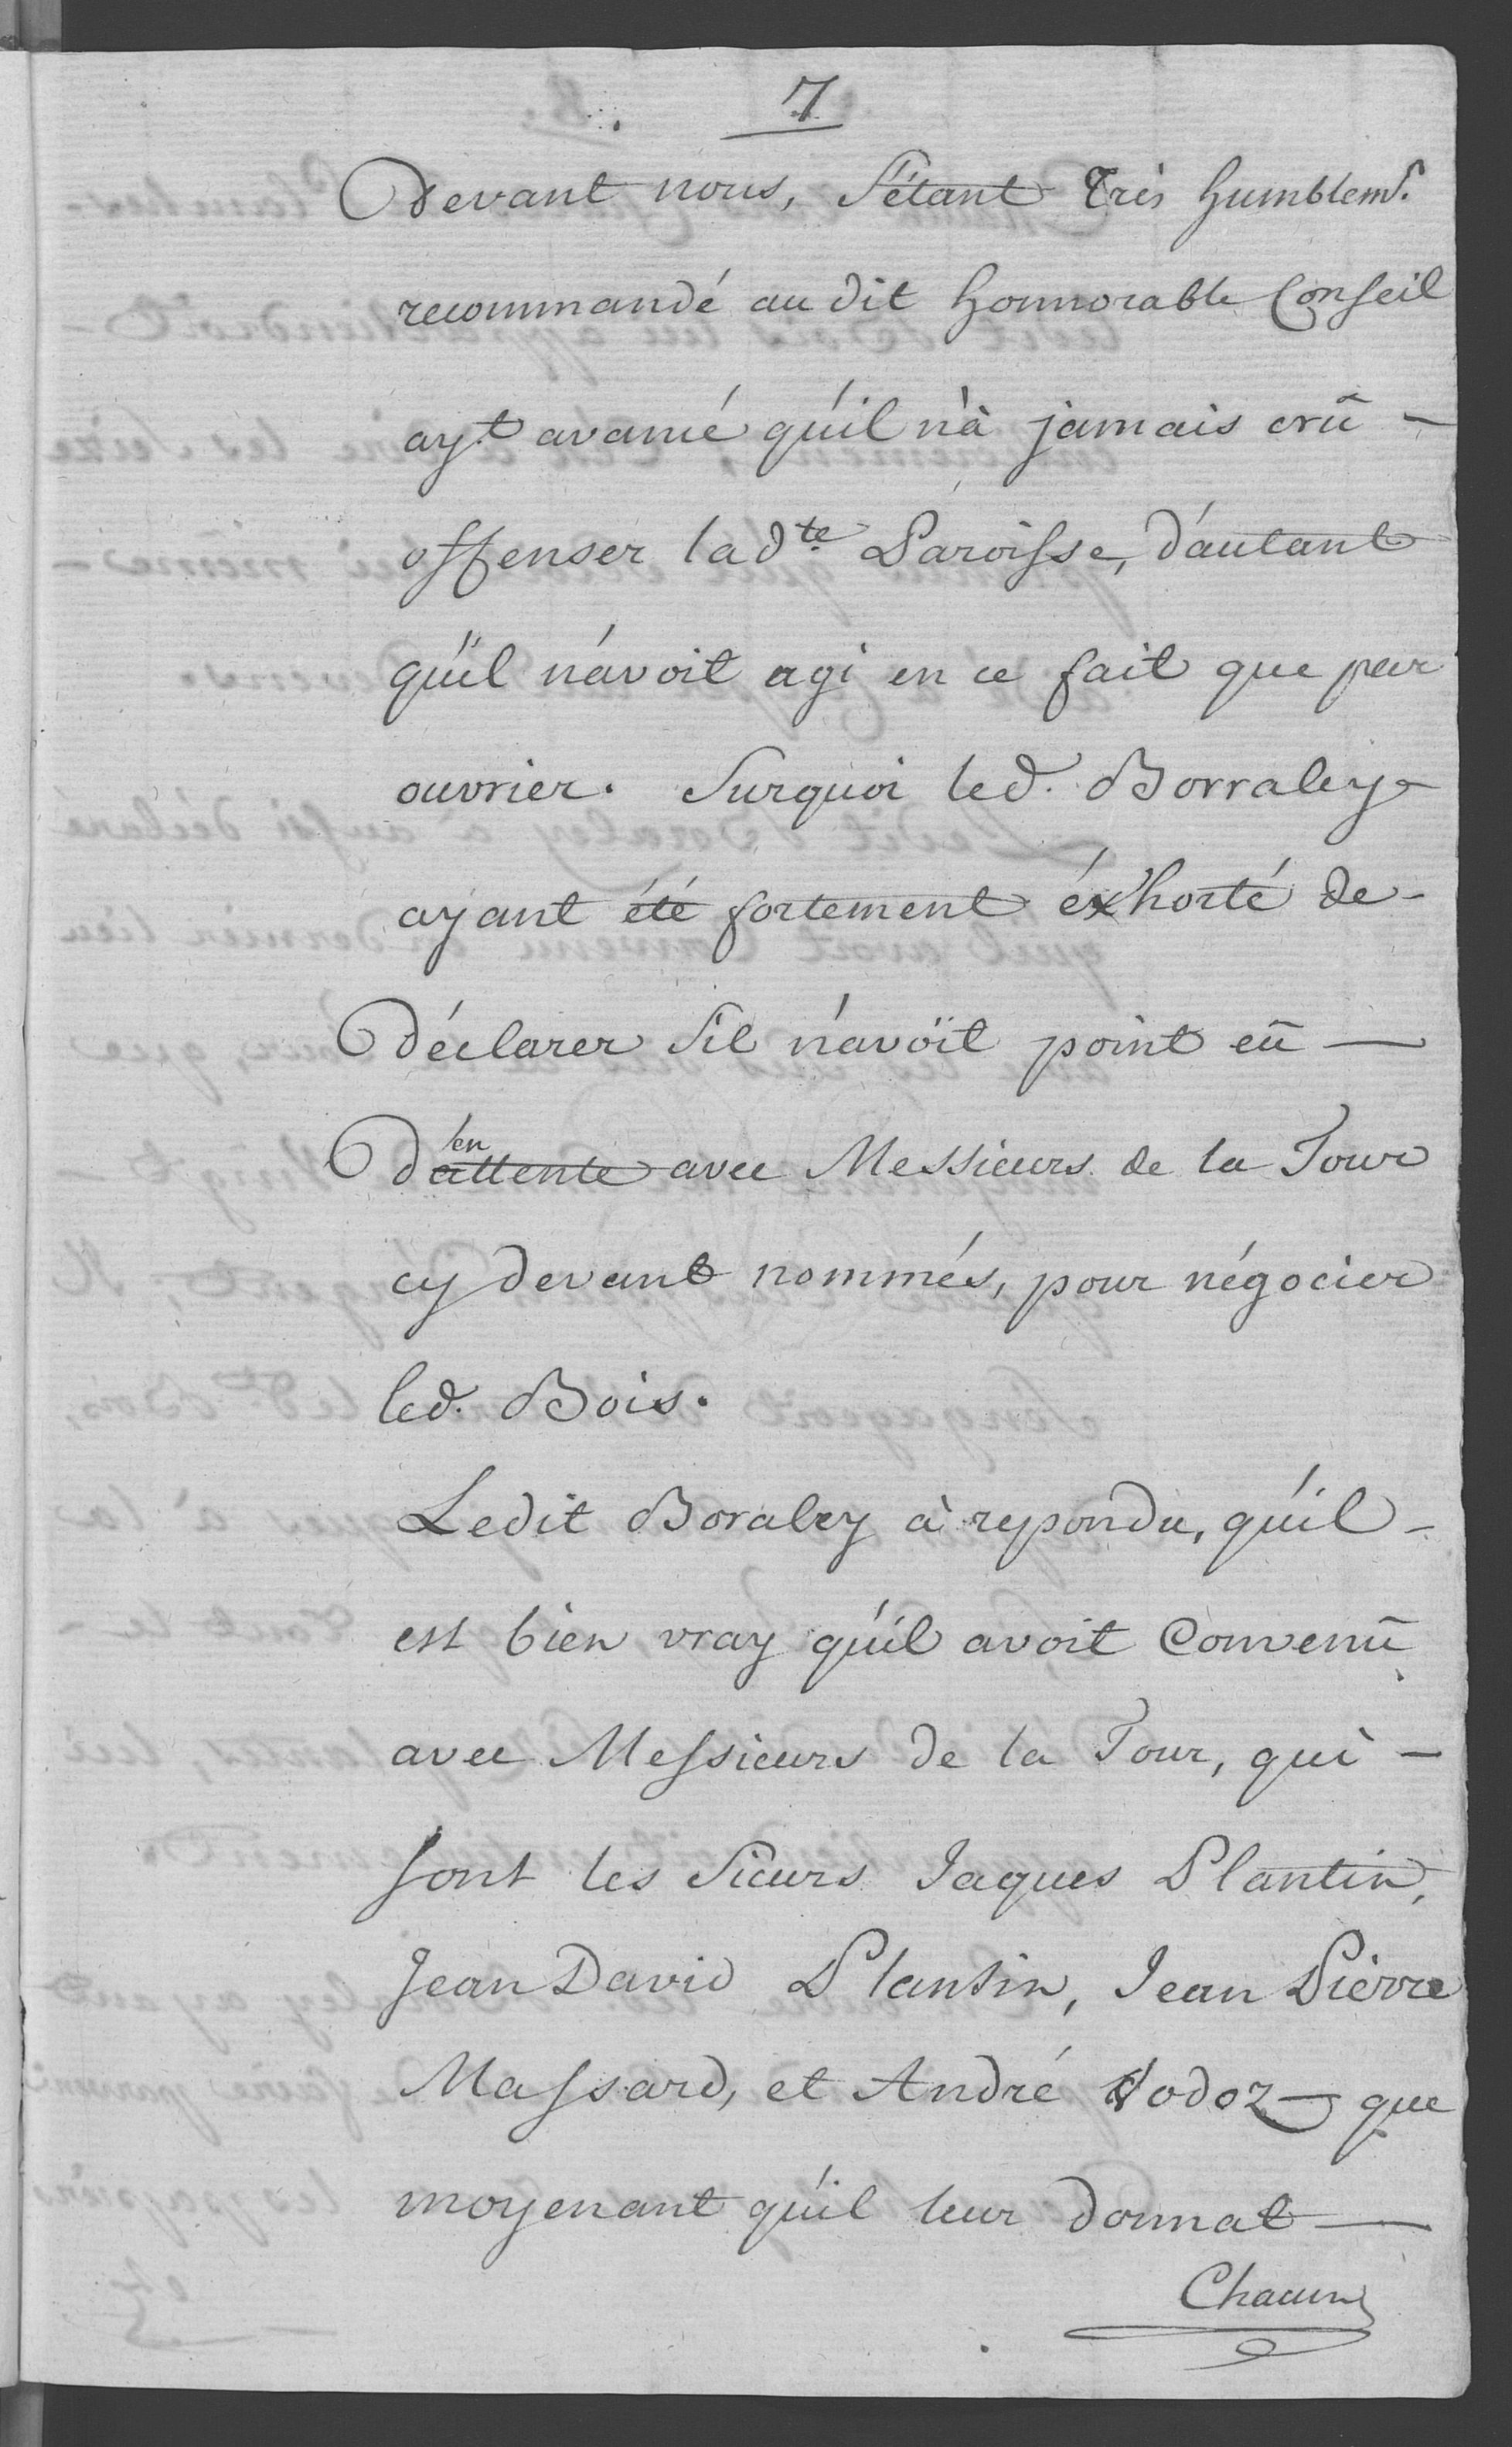 7
Devant nous, S'étant Très humblemt.
recommandé au dit honnorable Conseil
ayt. avancé qu'il n'à jamais crû -
offenser lad.te Paroisse, d'autant
qu'il n'avoit agi en ce fait que par
ouvrier. Surquoi led. Borraley
ayant été fortement éxhorté de -
Déclarer s'il n'avoit point eû —
en
D'attente avec Messieurs de la Tour
cy devant nommés, pour négocier
led. Bois.
Ledit Boraley à repondu, qu'il -
est bien vray qu'il avoit Convenû
avec Messieurs de la Tour, qui -
sont les Sieurs Jaques Plantin,
Jean David Plantin, Jean Pierre
Massard, et André Vodoz — que
moyenant qu'il leur donnat —
Chacun